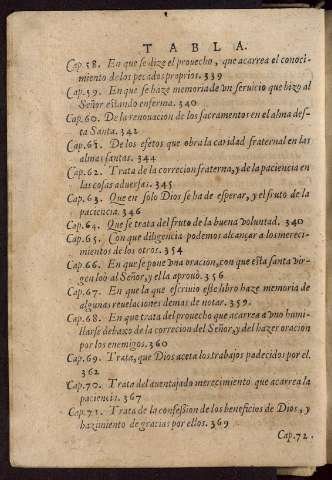 TABLA.
Cap.58. En que se dize el prouecho, que acarrea el conoci-
miento de los pecados proprios. 339
Cap.59. En que se haze memoria de vn seruicio que hizo al
Señor estando enferma. 340
Cap.60. De la renouacion de los sacramentos en el alma des-
ta Santa. 342
Cap.61. De los efetos que obra la caridad fraternal en las
almas santas. 344
Cap.62. Trata de la correcion fraterna, y de la paciencia en
las cosas aduersas. 345
Cap.63. Que en solo Dios se ha de esperar, y el fruto de la
paciencia. 346
Cap.64. Que se trata del fruto de la buena voluntad. 340
Cap.65. Con que diligencia podemos alcançar a los mereci-
mientos de los otros. 354
Cap.66. En que se pone vna oracion, con que esta santa vir-
gen loò al Señor, y el la aprouò. 356
Cap.67. En que la que escriuio este libro haze memoria de
algunas reuelaciones demas de notar. 359.
Cap.68. En que trata del prouecho que acarrea a vno humi-
llarse debaxo de la correcion del Señor, y del hazer oracion
por los enemigos. 360
Cap.69. Trata, que Dios aceta los trabajos padecidos por el.
362
Cap.70. Trata del auentajado merecimiento que acarrea la
paciencia. 367
Cap.71. Trata de la confession de los beneficios de Dios, y
hazimiento de gracias por ellos. 369
Cap.72.